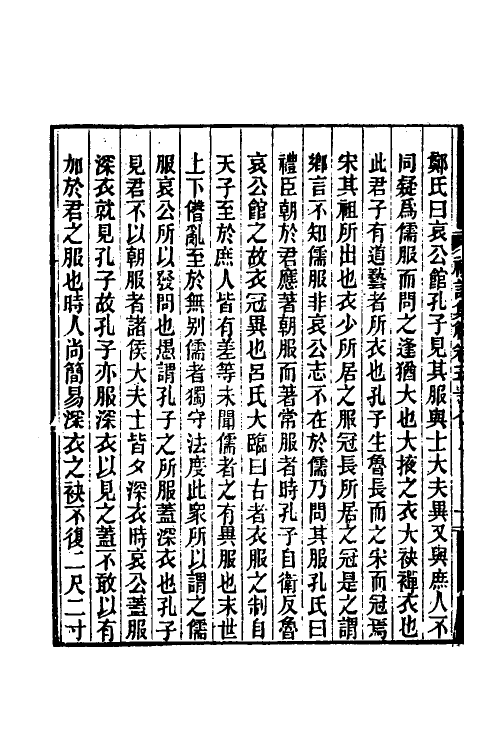 鄭氏曰哀公館孔子見其服與士大夫異又與庶人不
同疑爲儒服而問之逢猶大也大掖之衣大袂襌衣也
此君子有道藝者所衣也孔子生魯長而之宋而冠焉
宋其祖所出也衣少所居之服冠長所居之冠是之謂
鄉言不知儒服非哀公志不在於儒乃問其服孔氏曰
禮臣朝於君應著朝服而著常服者時孔子自衛反魯
哀公館之故衣冠異也呂氏大臨曰古者衣服之制自
天子至於庶人皆有差等未聞儒者之有異服也末世
上下僭亂至於無别儒者獨守法度此衆所以謂之儒
服哀公所以發問也愚謂孔子之所服蓋深衣也孔子
見君不以朝服者諸侯大夫士皆夕深衣時哀公蓋服
深衣就見孔子故孔子亦服深衣以見之蓋不敢以有
加於君之服也時人尚簡易深衣之袂不復二尺二寸